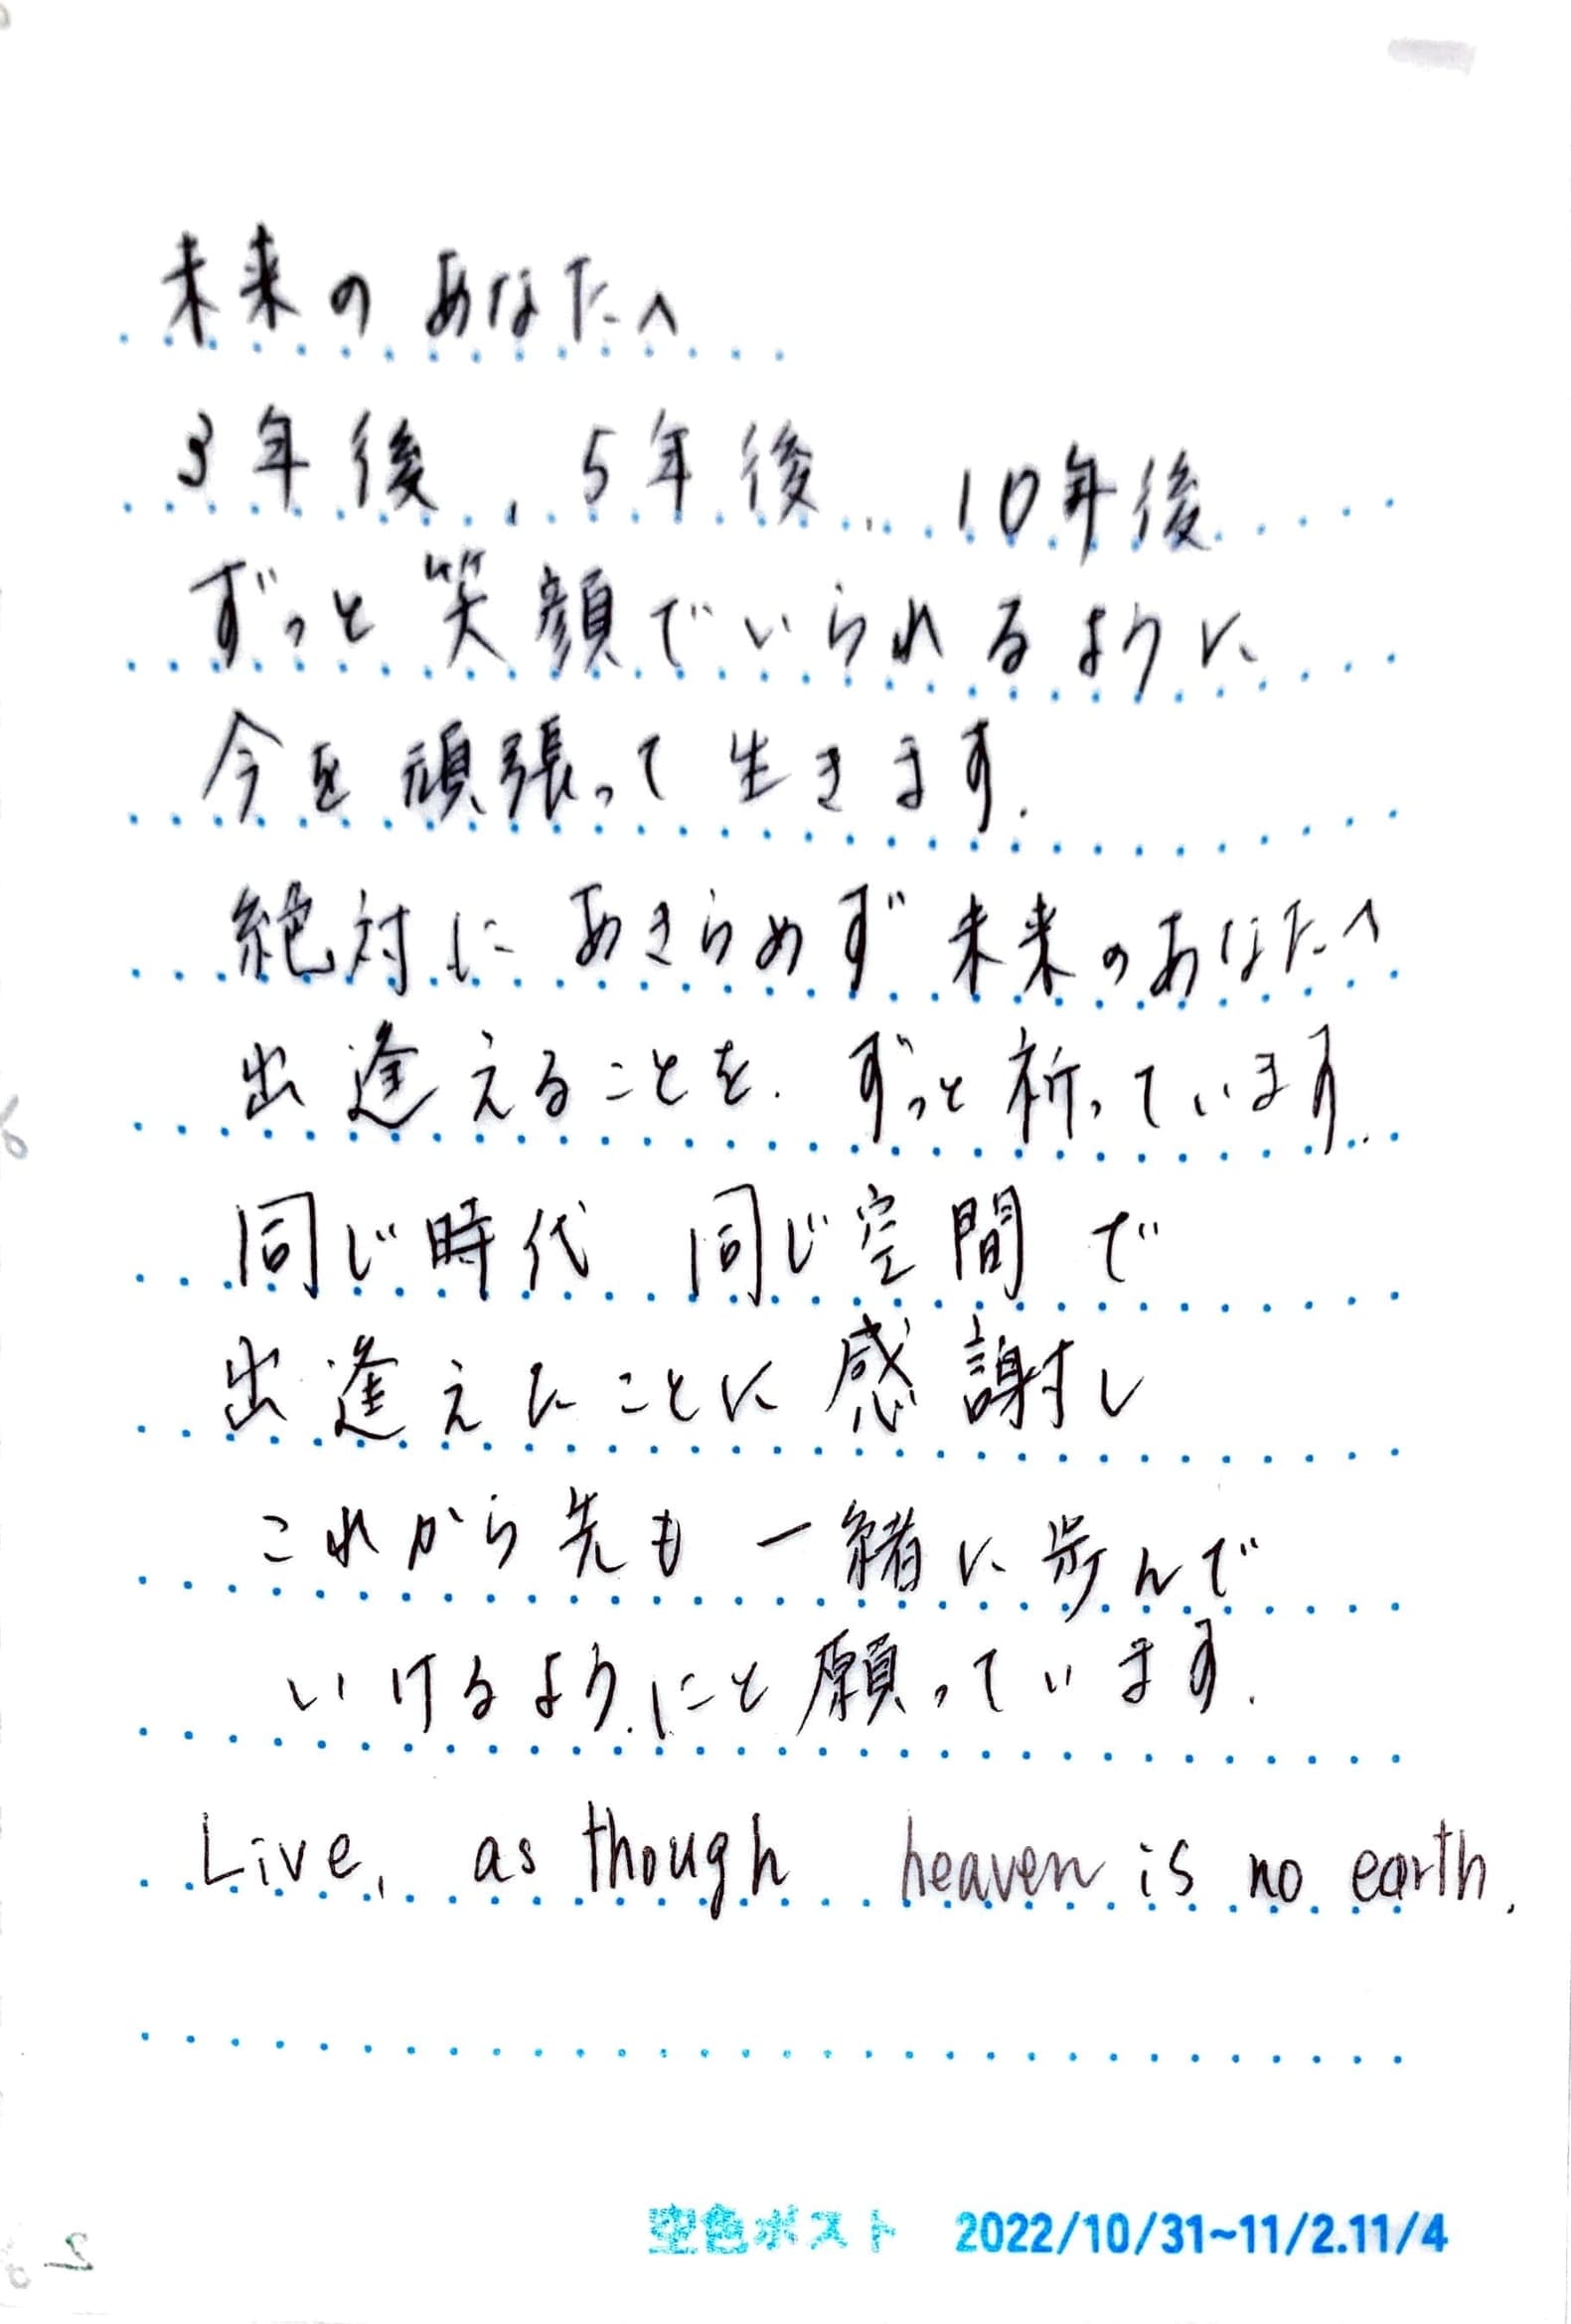 未来の あなたへ
3年後、5年後、10年後
ずっと笑顔でいられるように
今を頑張って生きます.
絶対に あきらめず 未来のあなたへ
出逢えることを. ずっと祈っています.
同じ時代 同じ空間で
出逢えたことに感謝し
これから先も 一緒に歩んで
いけるようにと願っています.
Live, as though heaven is no earth.
空色ポスト 2022/10/31~11/2.11/4